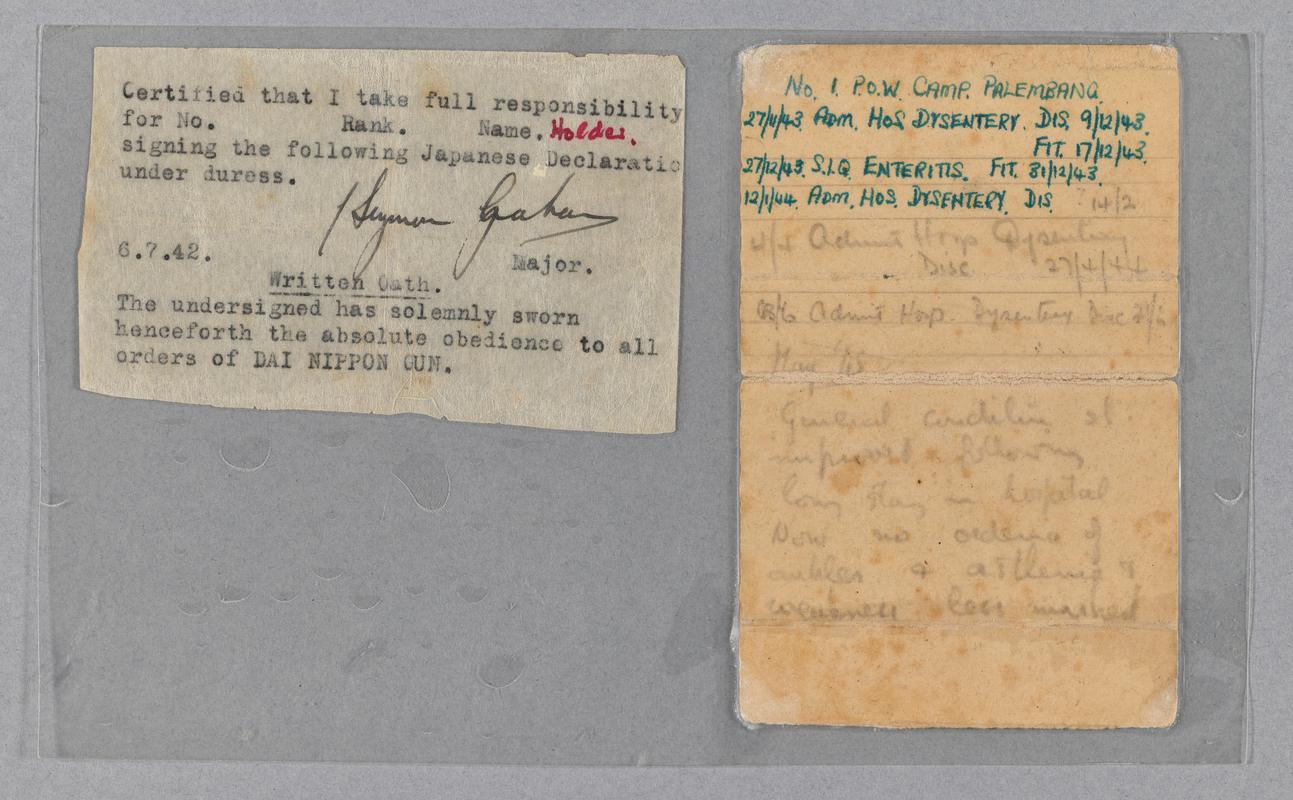 Certified that I take full responsibility
for No. Rank. Name. Holder.
signing the following Japanese Declaratio
under duress.
Seymour Graham
6.7.42. Major.
Written Oath.
The undersigned has solemnly sworn
henceforth the absolute obedience to all
orders of DAI NIPPON GUN.
No. 1. P.O.W. CAMP. PALEMBANG.
27/11/43. ADM. HOS. DYSENTERY. DIS. 9/12/43.
FIT. 17/12/43.
27/12/43. S.I.Q. ENTERITIS. FIT. 31/12/43.
12/1/44. ADM. HOS. DYSENTERY. DIS. 14/2
Admit Hosp Dysentery
Disc 27/4/44
Admit Hosp. Dysentery Disc
May '45
General condition
improved following
long stay in hospital
Now no oedema of
ankles & asthenia &
weakness less marked